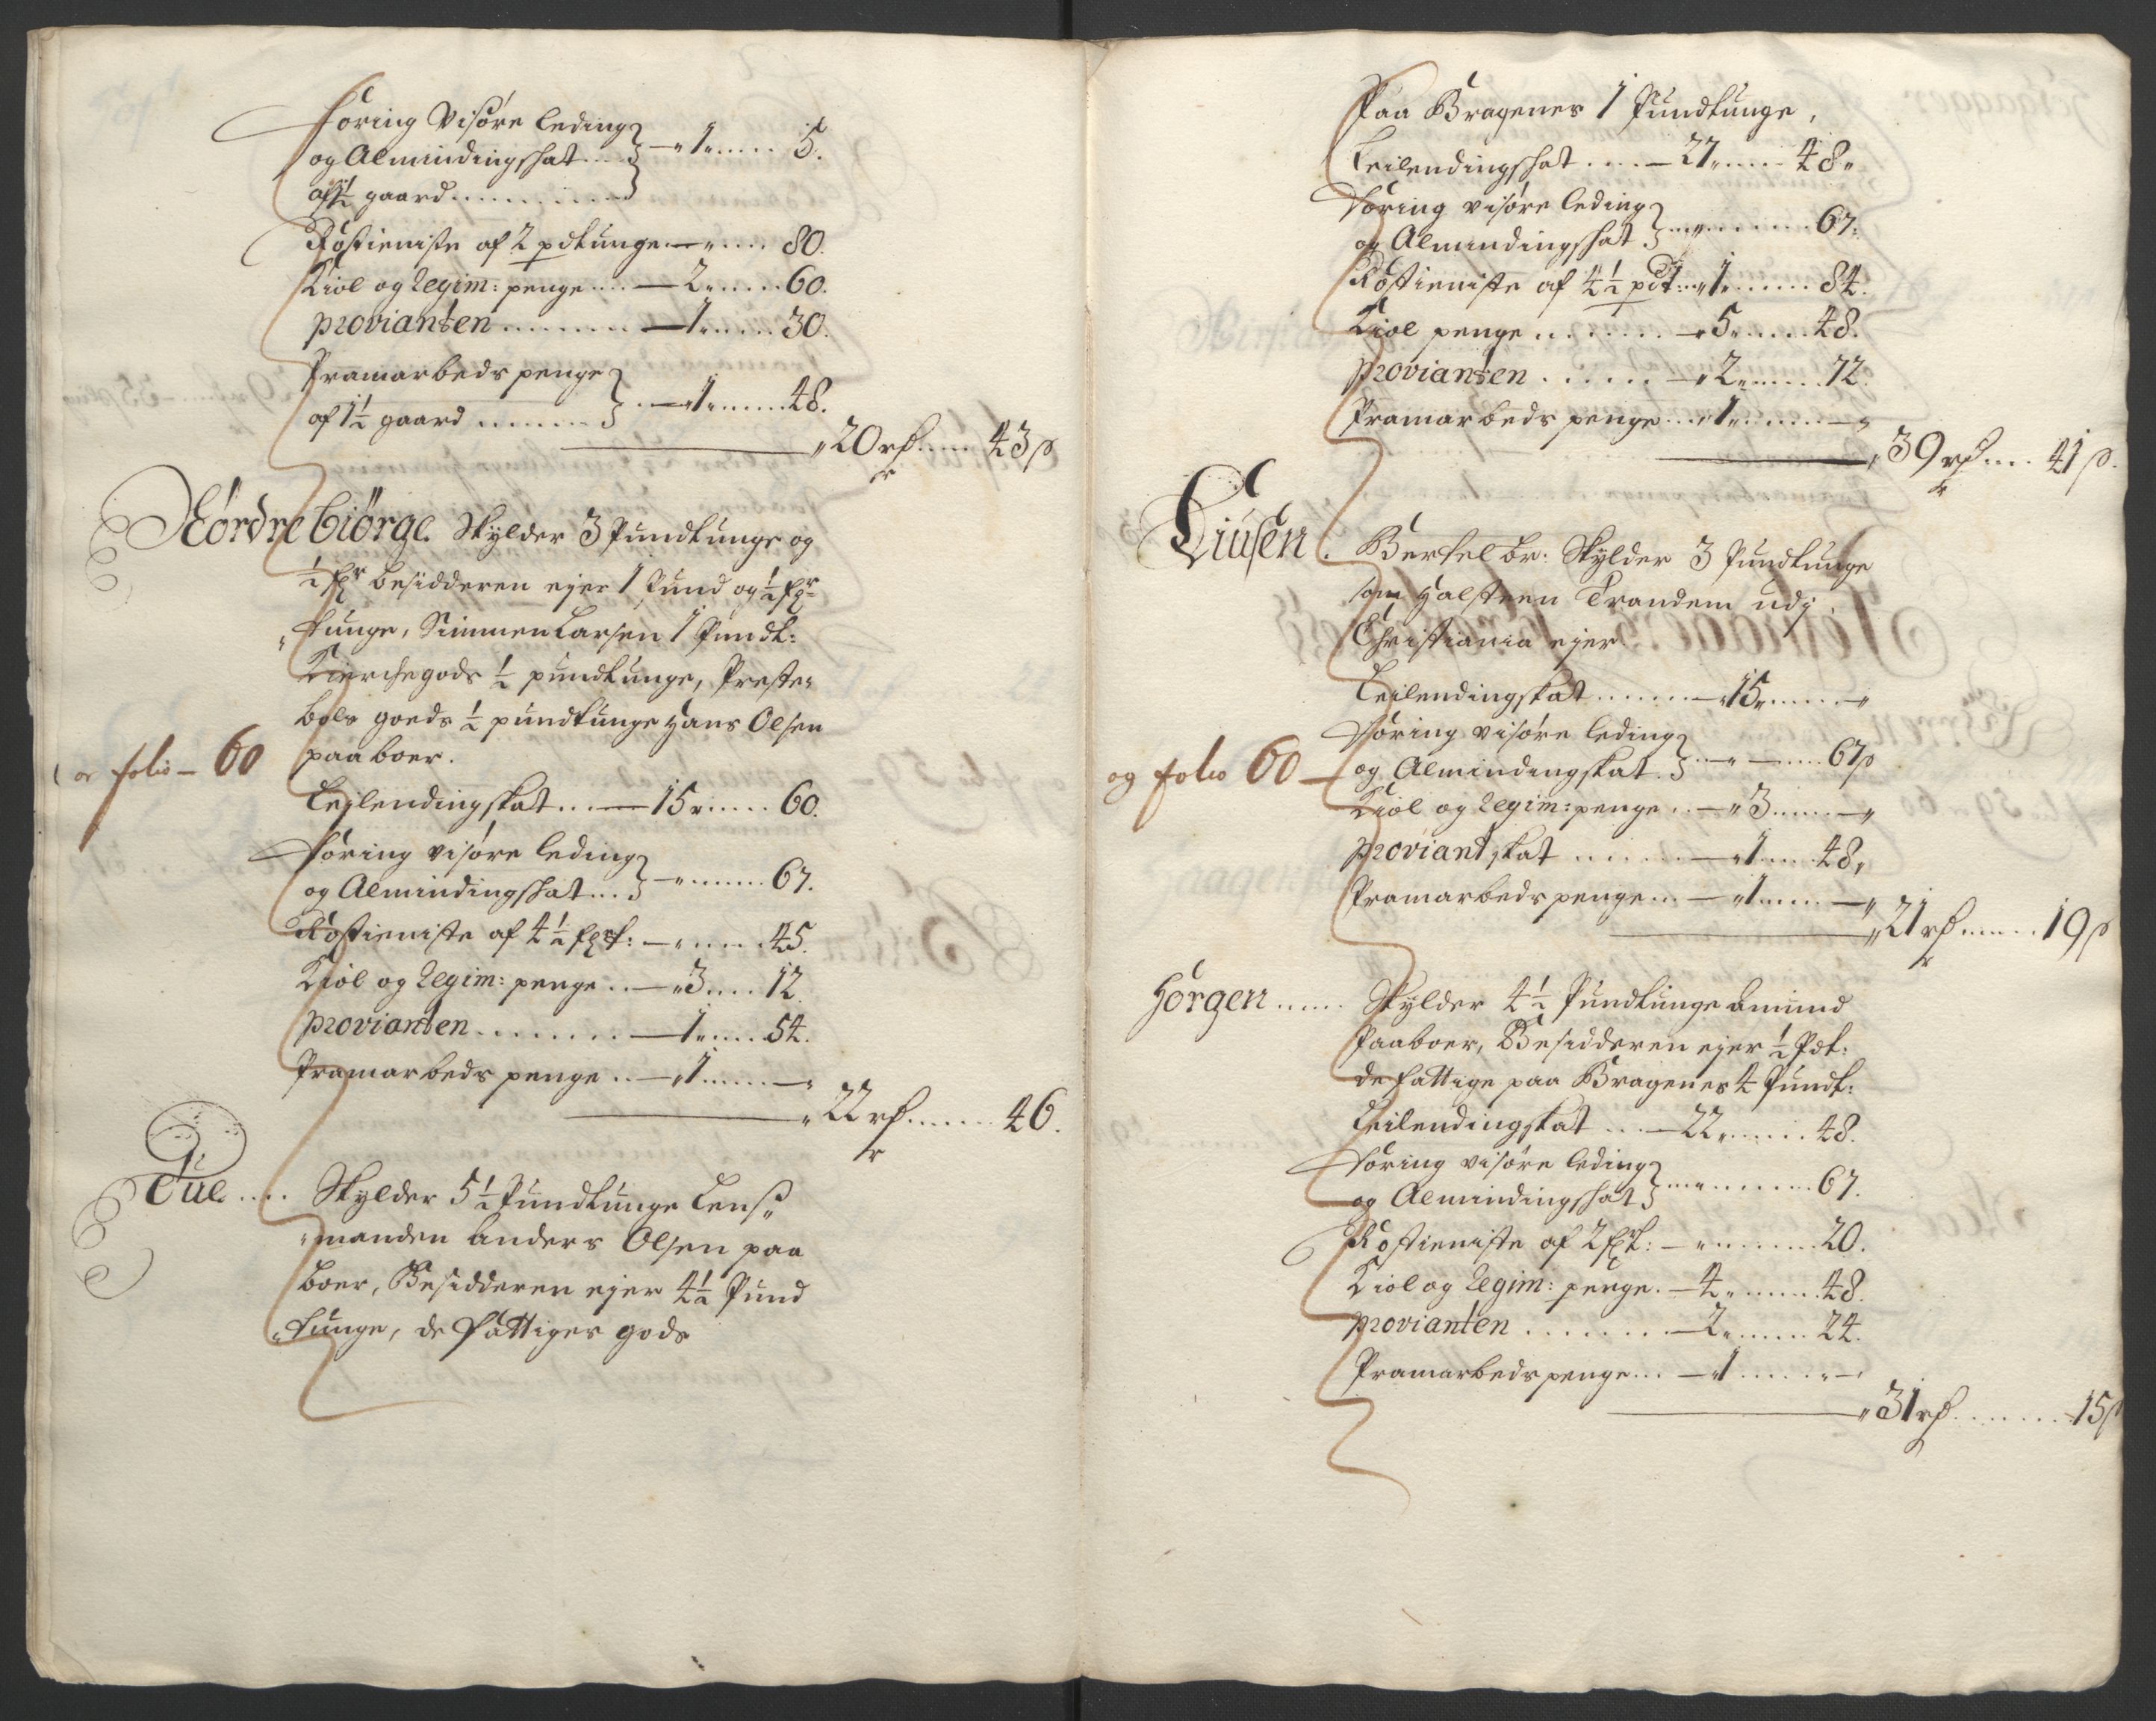 foring Visøre leding
og Almindingskat .... } — „ 1 „ ..... 5.
af 1½ gaard ...........
Rostieniste af 2 pdtunge — „ .... 80.
Kiol og Regim: penge .... — 2 „ ..... 60.
provianten ......... — 1 „ ..... 30.
Pramarbeds penge
af 1½ gaard ........ } .. — „ 1 „ ..... 48.
„ 20 rd ..... 43 ß
Nørdre Giörge. Skylder 3 Pundtunge og
½ fr besidderen ejer 1 Pund og ½ fr
„tunge, Simmen Larsen 1 Pundt:
Kierchegods ½ pundtunge, Preste„
bols goeds ½ pundtunge Hans Olsen
paaboer.
folio — 60
Leilendingskat ... — 15 „ ..... 60.
foring visøre leding
og Almindingskat ... } — „ ...... 67.
Rostieniste af 4½ fr: — „ ..... 45.
Kiol og Regim: penge .. — „ 3 .... 12.
provianten ........ — 1 „ .... 54.
Pramarbeds penge .. — „ 1 ...... — „
„ 22 rd ...... 46.
Tue .... Skylder 5½ Pundtunge Lens„
„manden Anders Olsen paa
boer, Besidderen ejer 4½ Pund
„tunge, de fattiges gods
Paa Bragenes 1 Pundtunge,
Leilendingskat .... — 27 „ .... 48 „
foring visøre leding
og Almindingskat } ... „ ....... 67.
Rostieniste af 4½ pdt: „ 1 „ ...... 84.
Kiol penge ........ — 5 „ .... 48.
provianten ...... — „ 2 „ ..... 72.
Pramarbeds penge ... „ 1 „ ..... — „
„ 39 rd ... 41 ß.
Liusen. Bertel br: Skylder 3 Pundtunge
som Halsteen Trandem udj
Christiania ejer
Leilendingskat ...... — 15 „ ..... — „
foring visøre leding
og folio 60 — og Almindingskat. } .. — „ — .... 67 ß
Kiol og Regim: penge .. — „ 3 ..... — „
proviant skat ....... — „ 1 .... 48 „
Pramarbeds penge ... — „ 1 ..... — „
„ 21 rd ..... 19 ß
Horgen ..... Skylder 4½ Pundtunge Amund
Paaboer, Besidderen ejer ½ Pdt:
de fattige paa Bragenes 4 Pundt:
Leilendingskat ... — 22 „ ..... 48.
foring visøre leding
og Almindingskat } ... „ ........ 67.
Rostieniste af 2 fr: — „ ....... 20.
Kiol og Regim: penge. — 4 „ ...... 48.
provianten ........ — 2 „ ..... 24.
Pramarbeds penge ... — „ 1 ..... „ —
„ 31 rd ........ 15 ß